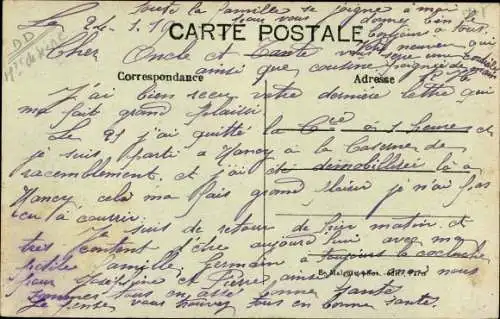 toute la famille se joigne à moi
pour vous donner bien le
bonjour à tous.
Le 24-1-19
CARTE POSTALE
Cher Oncle et Tante
ainsi que cousine
Correspondance
Adresse
J'ai bien reçu votre dernière lettre qui
ma fait grand plaisir
Le 21 j'ai quitté la Cie à 5 heures et
je suis parti a Nancy à la Caserne de
racemblement. et j'ai été démobilisée là à
Nancy celà ma fais grand plaisir je n'ai pas
eu à courrir.
Je suis de retour de hier matin. et
très content d'être aujourd'hui avec ma
petite famille, Germain a toujours la cocluche
pour Josephine et Pierre ainsi que nous
sommes tous en assé bonne santé
Je pense vous trouvez tous en bonne santé.